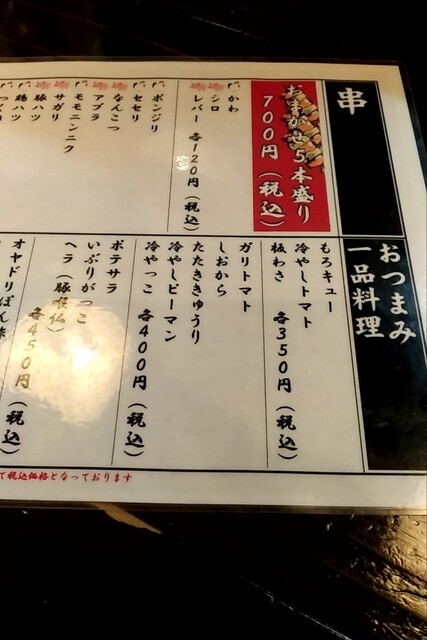 串
おまかせ5本盛り
700円(税込)
かわ
シロ
レバー 各120円(税込)
ボンジリ
セセリ
なんこつ
アブラ
モモニンニク
サガリ
豚ハツ
鶏ハツ
おつまみ
一品料理
もろキュー
冷やしトマト
板わさ 各350円(税込)
ガリトマト
しおから
たたききゅうり
冷やしピーマン
冷やっこ 各400円(税込)
ポテサラ
いぶりがっこ
ヘラ(豚
各450円(税込)
オヤドリぽん酢
て税込価格となっております